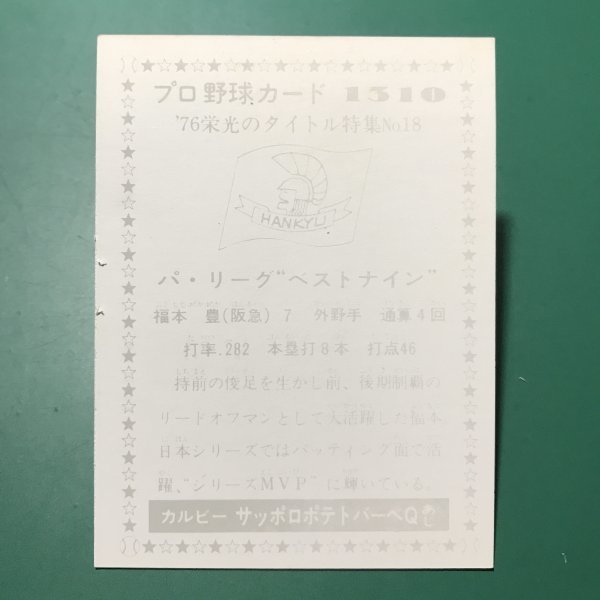 プロ野球カード 1310
'76栄光のタイトル特集No.18
HANKYU
パ・リーグ"ベストナイン"
福本 豊(阪急) 7 外野手 通算4回
打率.282 本塁打8本 打点46
持前の俊足を生かし前、後期制覇の
リードオフマンとして大活躍した福本
日本シリーズではバッティング面で活
躍、"シリーズMVP"に輝いている。
カルビー サッポロポテトバーベQあじ